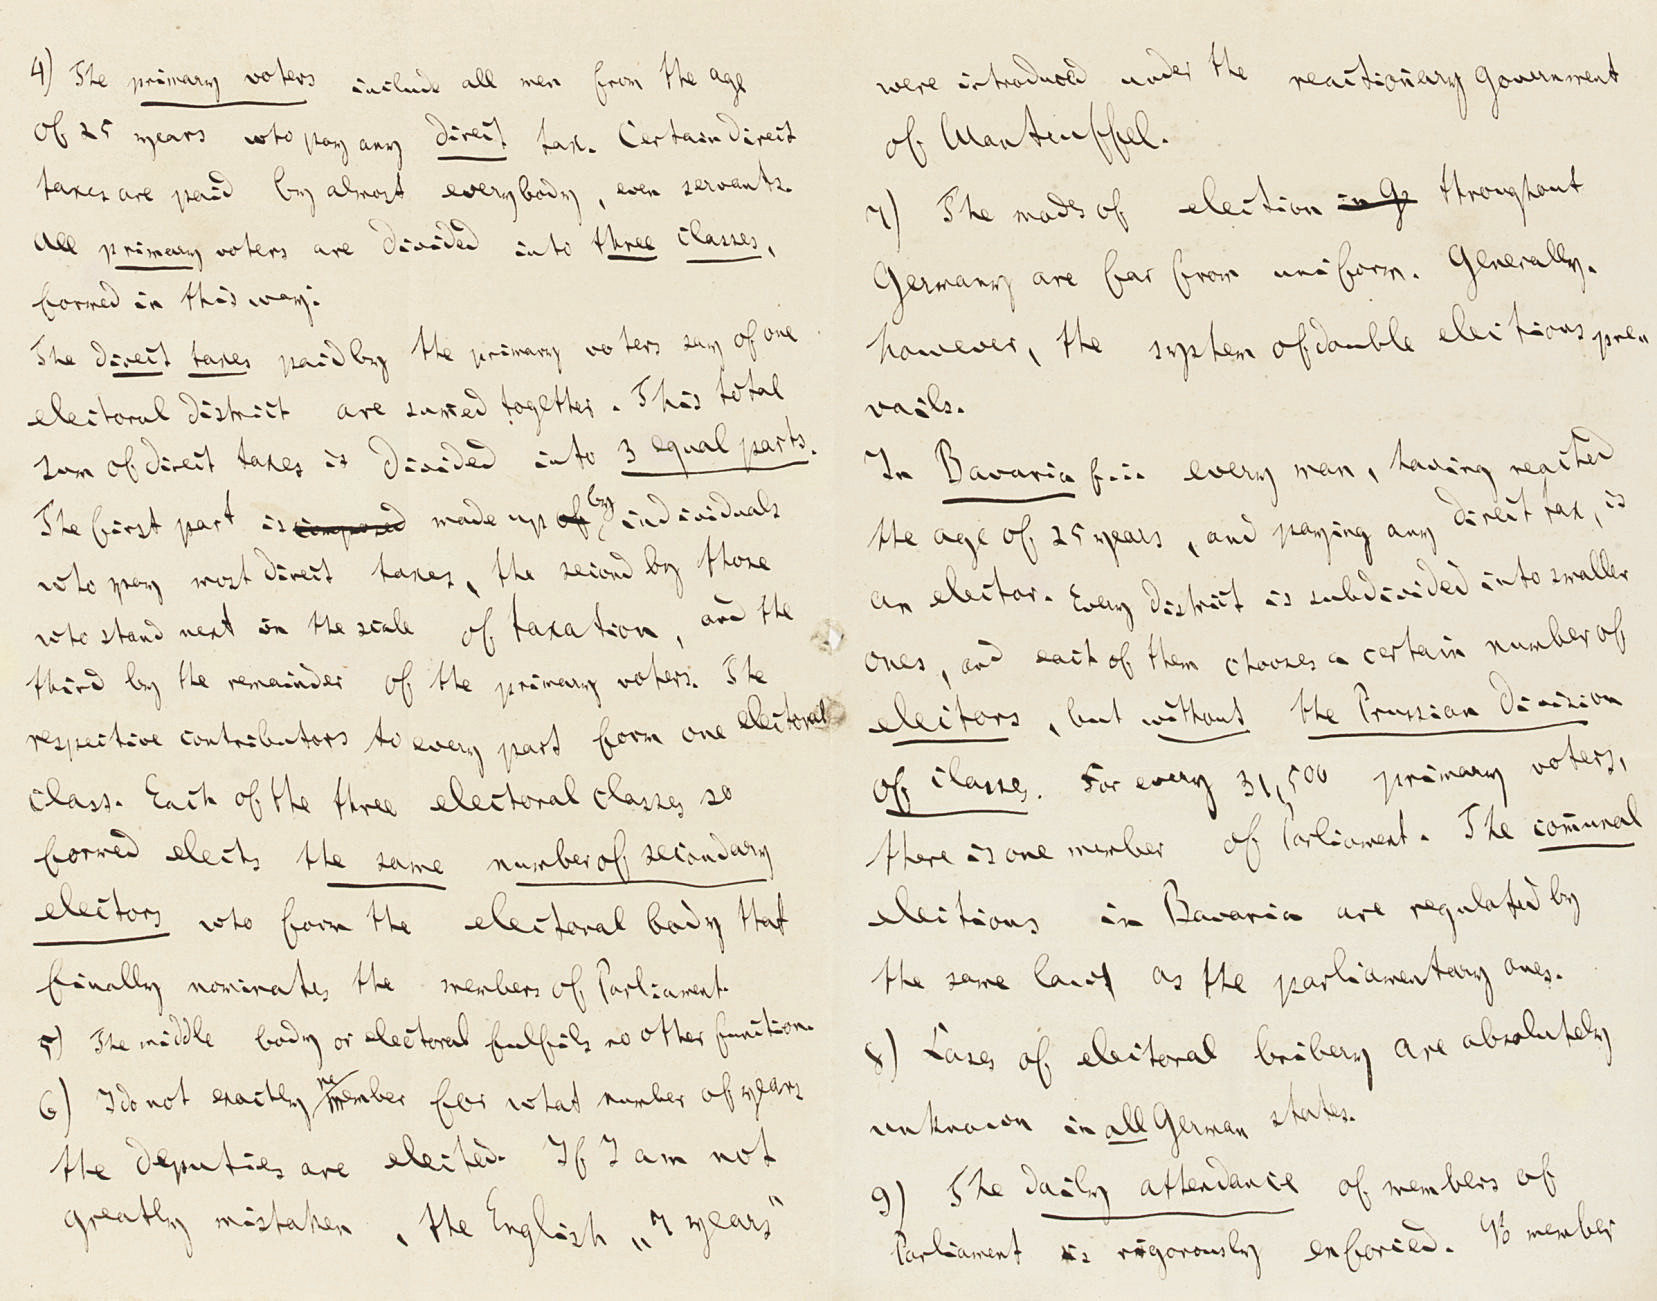 4) The primary voters include all men from the age
of 25 years who pay any direct tax. Certain direct
taxes are paid by almost everybody, even servants.
All primary voters are divided into three classes,
formed in this way:
The direct taxes paid by the primary voters say of one
electoral district are sumed together. This total
sum of direct taxes is divided into 3 equal parts.
The first part is composed made up of by individuals
who pay most direct taxes, the second by those
who stand next in the scale of taxation, and the
third by the remainder of the primary voters. The
respective contributors to every part form one electoral
class. Each of the three electoral classes so
formed elects the same number of secondary
electors who form the electoral body that
finally nominates the members of Parliament.
5) The middle body or electoral fulfils no other function.
6) I do not exactly remember for what number of years
the deputies are elected. If I am not
greatly mistaken, the English „7 years"
were introduced under the reactionary Government
of Manteuffel.
7) The mode of election in Ge throughout
Germany are far from uniform. Generally.
however, the system of double elections pre„
vails.
In Bavaria f.i. every man, having reached
the age of 25 years, and paying any direct tax, is
an elector. Every district is subdivided into smaller
ones, and each of them chooses a certain number of
electors, but without the Prussian division
of classes. For every 31,500 primary voters,
there is one member of Parliament. The com̄unal
elections in Bavaria are regulated by
the same laws as the parliamentary ones.
8) Cases of electoral bribery are absolutely
unknown in all German states.
9) The daily attendance of members of
Parliament is rigorously enforced. No member